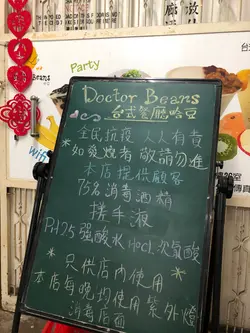 Party
Doctor Beans
台式餐廳哈豆
全民抗疫 人人有責
*如發燒者 敬請勿進
本店提供顧客
75%消毒酒精
搓手液
PH2.5強酸水 HOCL次氯酸
*只供店內使用*
本店每晚均使用紫外燈
消毒店面
Beans
Wifi